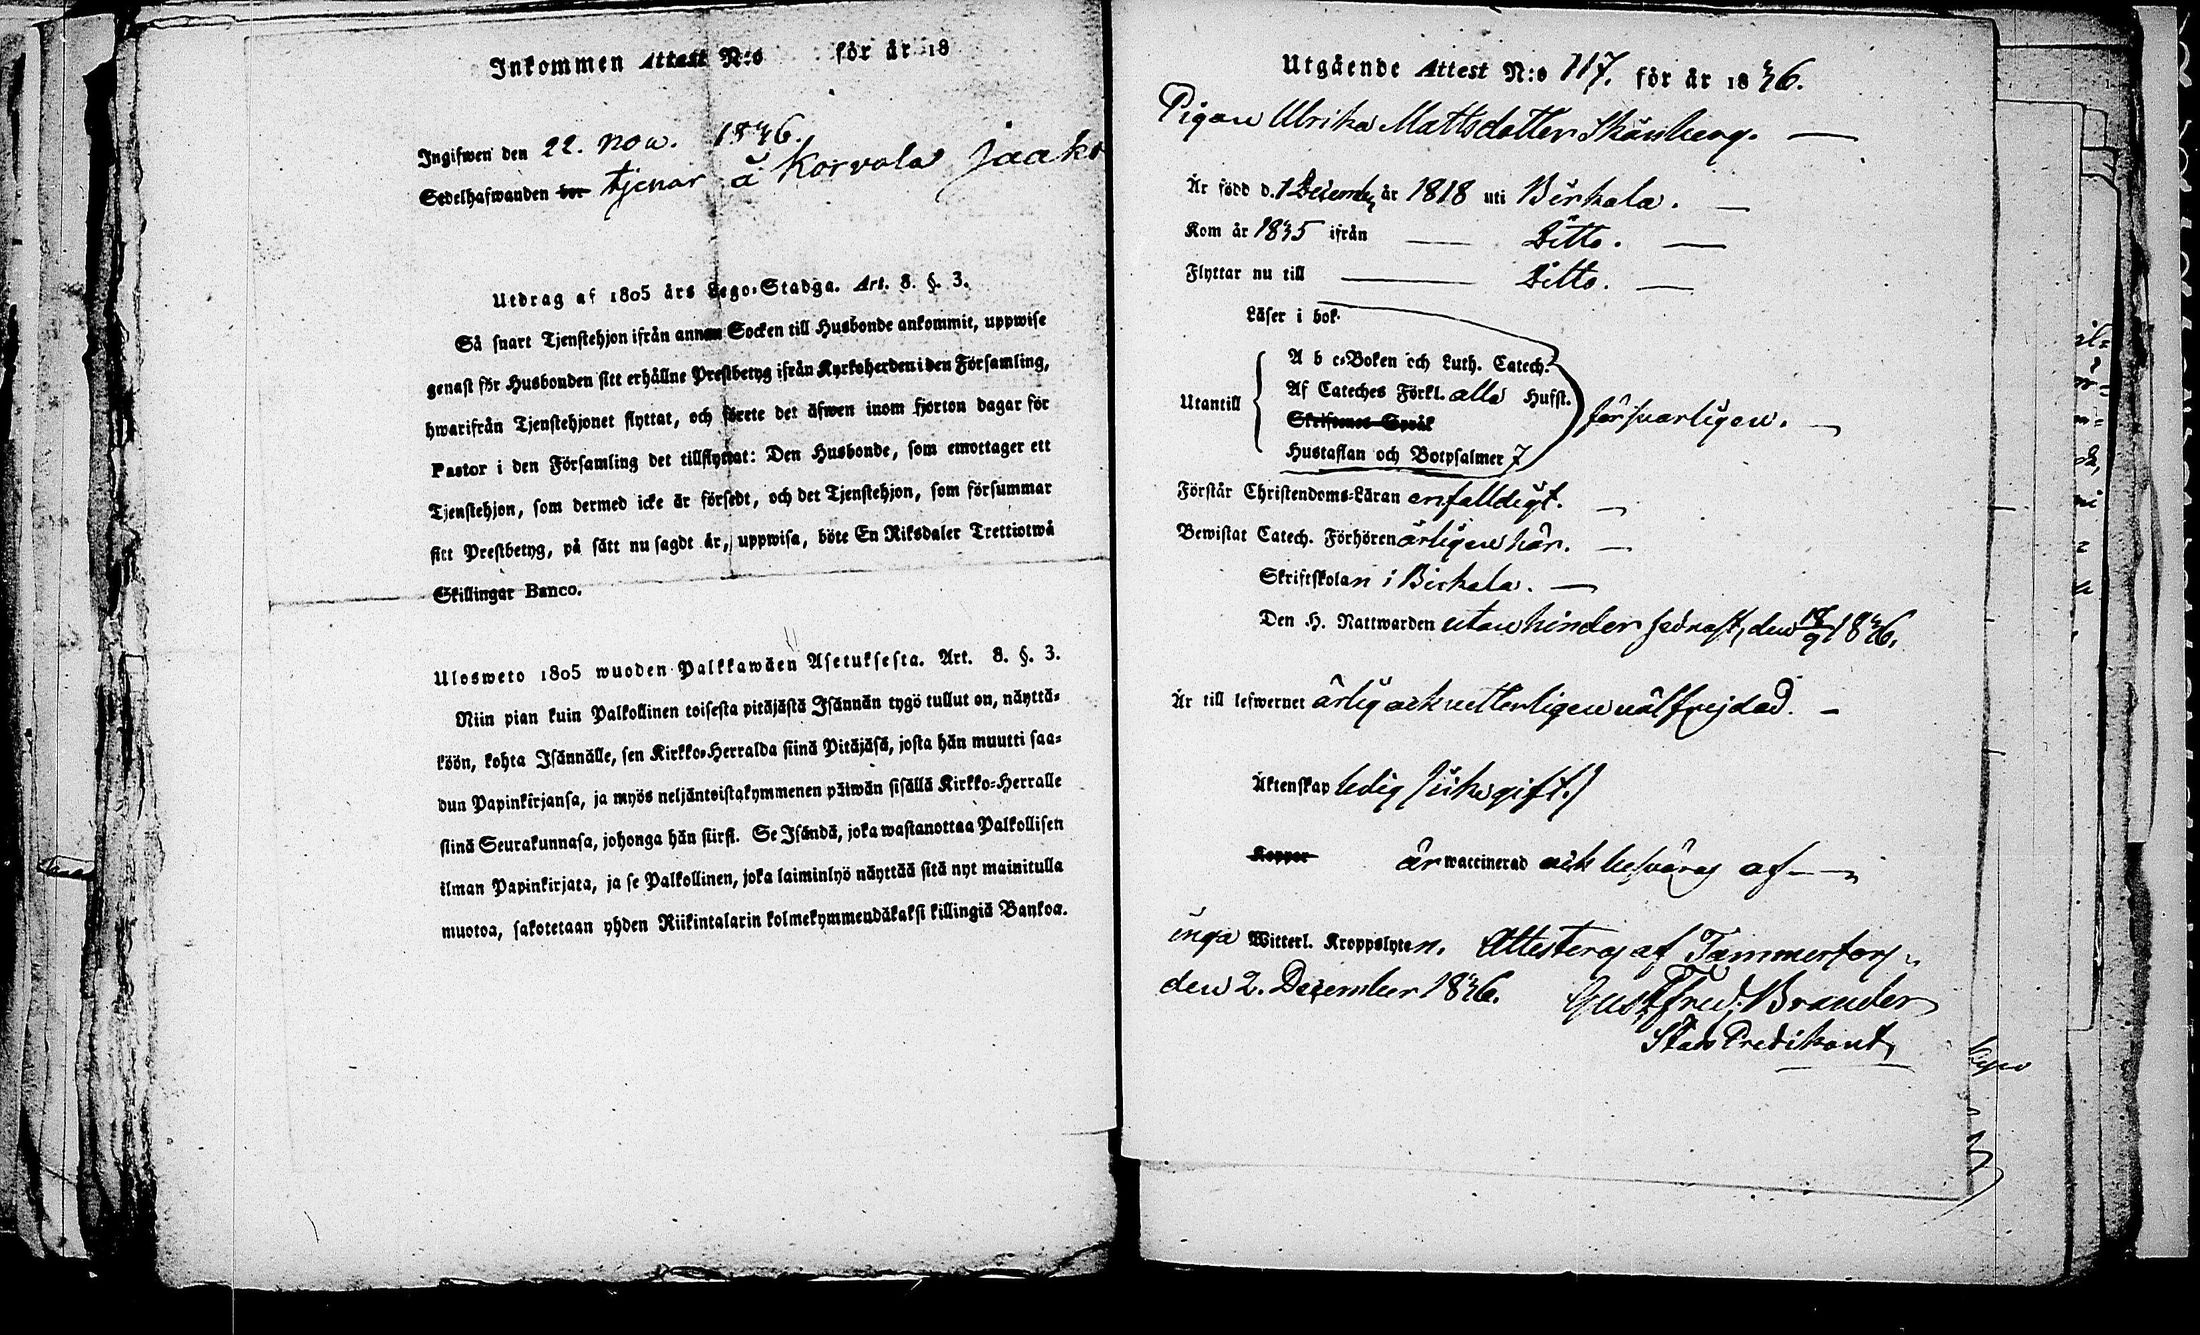 Inkommen Attest N:o för år 18
Ingifwen den 22. Nov. 1836.
Sedelhafwanden bor tjenar å Korvola Jaako
Utdrag af 1805 års Lego-Stadga. Art. 8. §. 3.
Så snart Tjenstehjon ifrån annan Socken till Husbonde ankommit, uppwise
genast för Husbonden sitt erhållne Prestbetyg ifrån Kyrkoherden i den Församling,
hwarifrån Tjenstehjonet flyttat, och förete det äfwen inom fjorton dagar för
Pastor i den Församling det tillflyttat: Den Husbonde, som emottager ett
Tjenstehjon, som dermed icke är försedt, och det Tjenstehjon, som försummar
sitt Prestbetyg, på sätt nu sagdt är, uppwisa, böte En Riksdaler Trettiotwå
Skillingar Banco.
Ulosweto 1805 wuoden Palkkawäen Asetuksesta. Art. 8. §. 3.
Niin pian kuin Palkollinen toisesta pitäjästä Isännän tygö tullut on, näyttä-
köön, kohta Isännälle, sen Kirkko-Herralda siinä Pitäjäsä, josta hän muutti saa-
dun Papinkirjansa, ja myös neljäntoistakymmenen päiwän sisällä Kirkko-Herralle
siinä Seurakunnasa, johonga hän siirsi. Se Isändä, joka wastanottaa Palkollisen
ilman Papinkirjata, ja se Palkollinen, joka laiminlyö näyttää sitä nyt mainitulla
muotoa, sakotetaan yhden Riikintalarin kolmekymmendäkaksi killingiä Bankoa.
Utgående Attest N:o 117. för år 1836.
Pigan Ulrika Mattsdotter Skånberg.
Är född d. 1 December år 1818 uti Birkala.
Kom år 1835 ifrån Ditto.
Flyttar nu till Ditto.
Läser i bok
A b c-Boken och Luth. Catech.
Utantill Af Cateches Förkl. alla Hufst. försvarligen.
Skriftenes Språk
Hustaflan och Botpsalmer 7
Förstår Christendoms-Läran enfalldigt.
Bewistat Catech. Förhören årligen här.
Skriftskolan i Birkala.
Den H. Nattwarden utan hinder sednast, den 18/9 1836.
Är till lefwernet ärlig och vetterligen välfrejdad.
Äktenskap ledig (icke gift.)
Koppor är waccinerad och besväras af
inga Witterl. Kroppslyten. Attesteras af Tammerfors
den 2. December 1836. Gust. Fred. Brander
Stads Predikant,